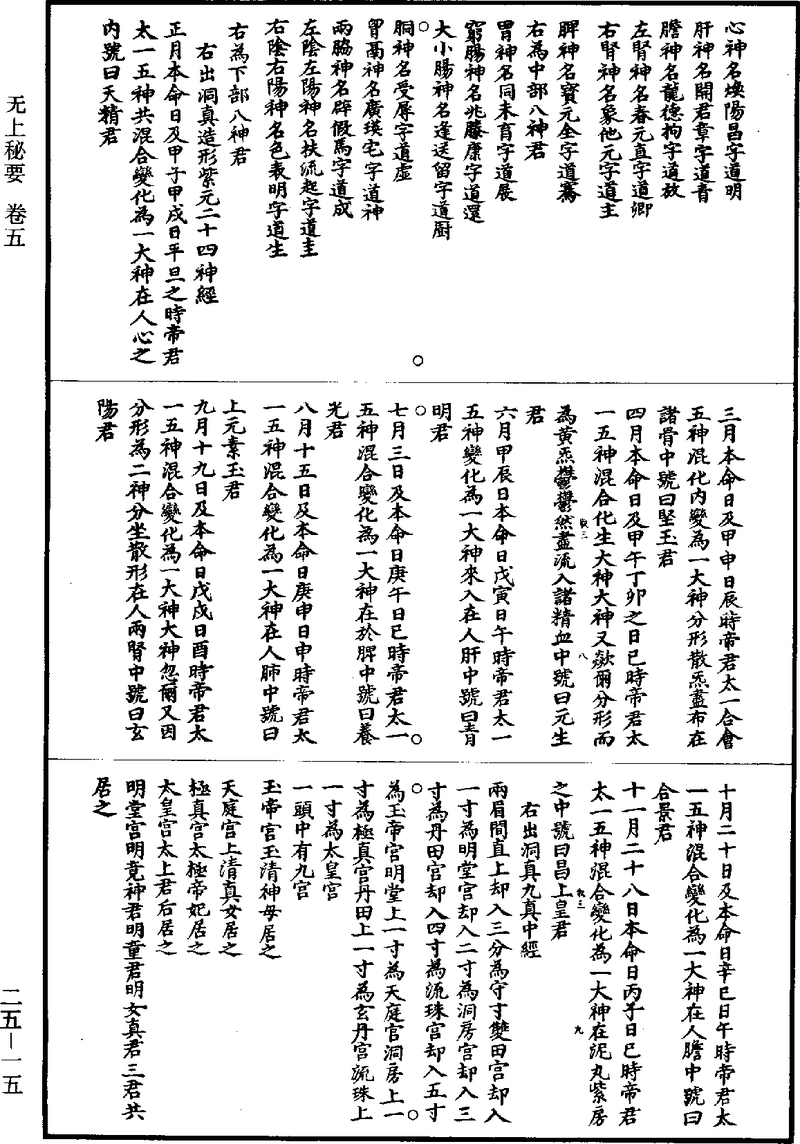 无上秘要 卷五
二五—一五
心神名煥陽昌字道明
肝神名開君章字道青
膽神名龍德拘字道放
左腎神名春元直字道卿
右腎神名象他元字道主
脾神名寶元全字道騫
右為中部八神君
胃神名同未育字道展
窮腸神名兆滕康字道還
大小腸神名蓬送留字道厨
胴神名受厚字道虛
胷鬲神名廣瑛宅字道神
兩脇神名辟假馬字道成
左陰左陽神名扶流起字道圭
右陰右陽神名色表明字道生
右為下部八神君
右出洞真造形紫元二十四神經
正月本命日及甲子甲戌日平旦之時帝君
太一五神共混合變化為一大神在人心之
內號曰天精君
三月本命日及甲申日辰時帝君太一合會
五神混化內變為一大神分形散炁盡布在
諸骨中號曰堅玉君
四月本命日及甲午丁卯之日巳時帝君太
一五神混合化生大神大神又歘爾分形而
為黃炁鬱鬱然盡流入諸精血中號曰元生
君
六月甲辰日本命日戊寅日午時帝君太一
五神變化為一大神來入在人肝中號曰青
明君
七月三日及本命日庚午日巳時帝君太一
五神混合變化為一大神在於脾中號曰養
光君
八月十五日及本命日庚申日申時帝君太
一五神混合變化為一大神在人肺中號曰
上元素玉君
九月十九日及本命日戊戌日酉時帝君太
一五神混合變化為一大神大神忽爾又因
分形為二神分坐散形在人兩腎中號曰玄
陽君
十月二十日及本命日辛巳日午時帝君太
一五神混合變化為一大神在人膽中號曰
合景君
十一月二十八日本命日丙子日巳時帝君
太一五神混合變化為一大神在泥丸紫房
之中號曰昌上皇君
右出洞真九真中經
兩眉間直上却入三分為守寸雙田宮却入
一寸為明堂宮却入二寸為洞房宮却入三
寸為丹田宮却入四寸為流珠宮却入五寸
為玉帝宮明堂上一寸為天庭宮洞房上一
寸為極真宮丹田上一寸為玄丹宮流珠上
一寸為太皇宮
一頭中有九宮
玉帝宮玉清神母居之
天庭宮上清真女居之
極真宮太極帝妃居之
太皇宮太上君后居之
明堂宮明竟神君明童君明女真君三君共
居之